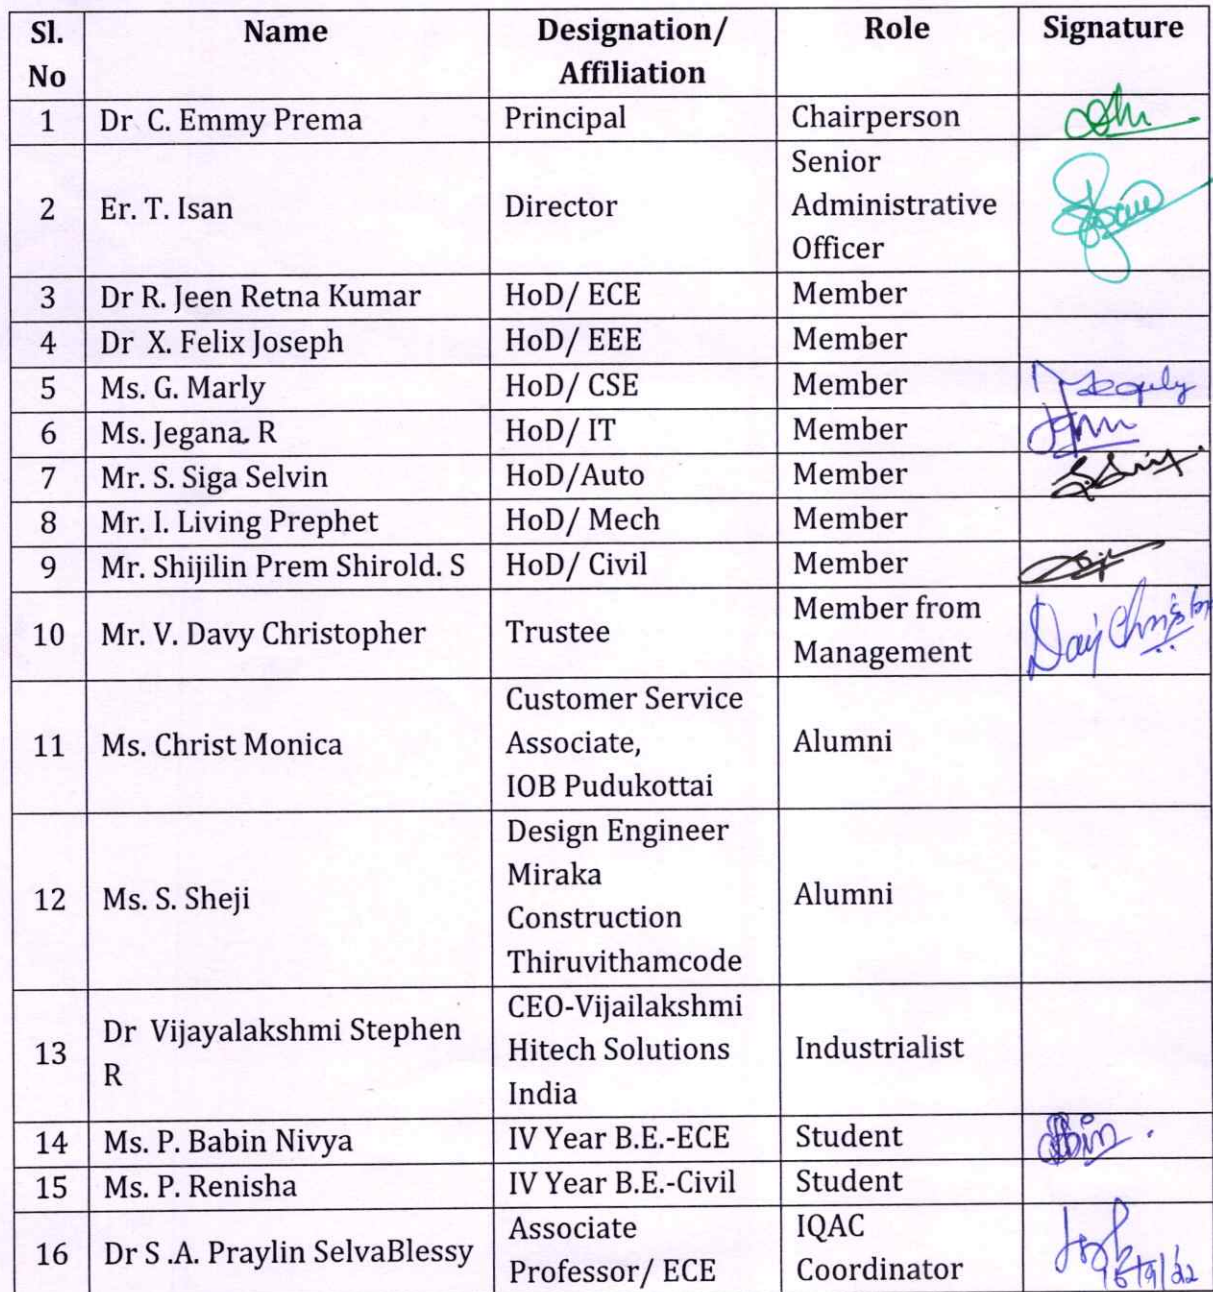 Sl. No Name Designation/ Affiliation Role Signature
1 Dr C. Emmy Prema Principal Chairperson
2 Er. T. Isan Director Senior Administrative Officer
3 Dr R. Jeen Retna Kumar HoD/ ECE Member
4 Dr X. Felix Joseph HoD/ EEE Member
5 Ms. G. Marly HoD/ CSE Member
6 Ms. Jegana. R HoD/ IT Member
7 Mr. S. Siga Selvin HoD/Auto Member
8 Mr. I. Living Prephet HoD/ Mech Member
9 Mr. Shijilin Prem Shirold. S HoD/ Civil Member
10 Mr. V. Davy Christopher Trustee Member from Management
11 Ms. Christ Monica Customer Service Associate, IOB Pudukottai Alumni
12 Ms. S. Sheji Design Engineer Miraka Construction Thiruvithamcode Alumni
13 Dr Vijayalakshmi Stephen R CEO-Vijailakshmi Hitech Solutions India Industrialist
14 Ms. P. Babin Nivya IV Year B.E.-ECE Student
15 Ms. P. Renisha IV Year B.E.-Civil Student
16 Dr S .A. Praylin SelvaBlessy Associate Professor/ ECE IQAC Coordinator